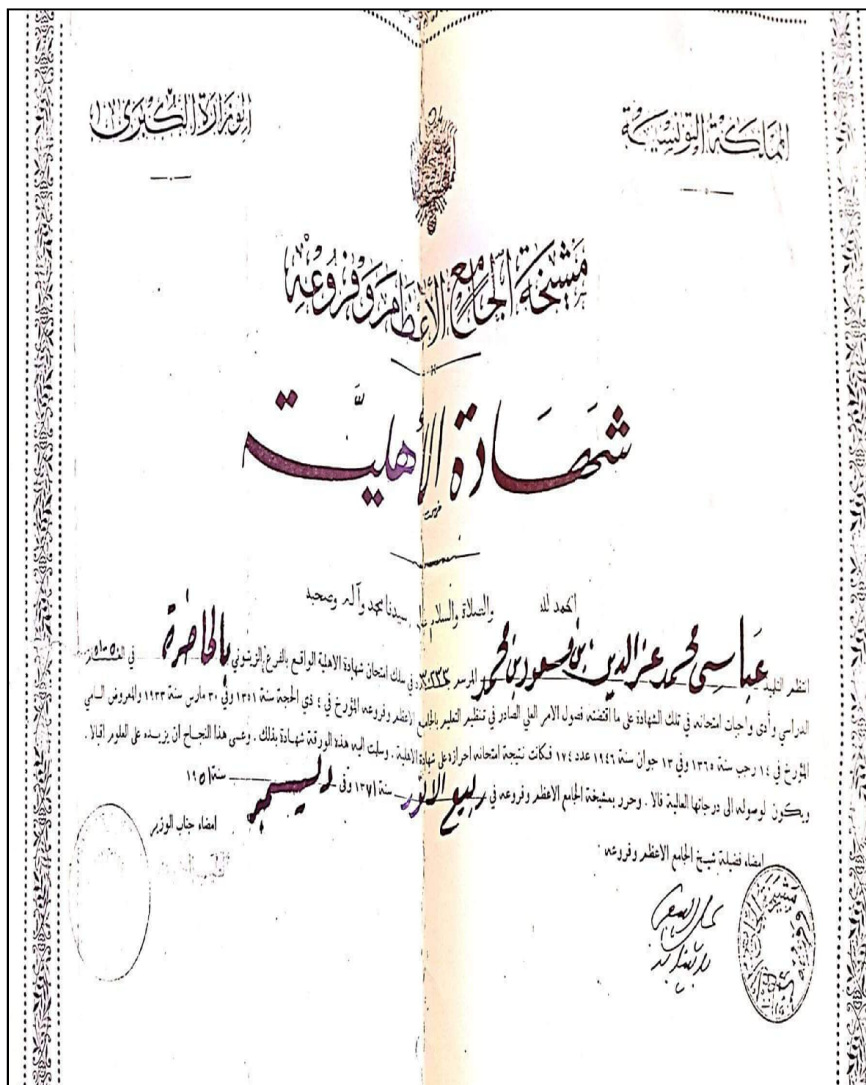 المملكة التونسية
الوزارة الكبرى
مشيخة الجامع الأعظم وفروعه
شهادة الأهلية
الحمد لله والصلاة والسلام على سيدنا محمد وآله وصحبه
انتظم التلميذ عباسي محمد عز الدين بن مسعود بن محمد المرسم في سلك امتحان شهادة الاهلية الواقع بالفرع الزيتوني بالحاضرة في
الدراسي وأدى واجبات امتحانه في تلك الشهادة على ما اقتضته فصول الامر العلي الصادر في تنظيم التعليم بالجامع الاعظم وفروعه المؤرخ في ٤ ذي الحجة سنة ١٣٥١ وفي ٣٠ مارس سنة ١٩٣٣ والمعروض السامي
المؤرخ في ١٤ رجب سنة ١٣٦٥ وفي ١٣ جوان سنة ١٩٤٦ عدد ١٧٤ فكانت نتيجة امتحانه احرازه على شهادة الاهلية . وسلمت اليه هذه الورقة شهادة بذلك . وعسى هذا النجاح ان يزيده على العلوم اقبالا .
ويكون لوصوله الى درجاتها العالية فالا . وحرر بمشيخة الجامع الاعظم وفروعه في ربيع الانور سنة ١٣٧١ وفي ديسمبر سنة ١٩٥١
امضاء جناب الوزير
امضاء فضيلة شيخ الجامع الاعظم وفروعه :